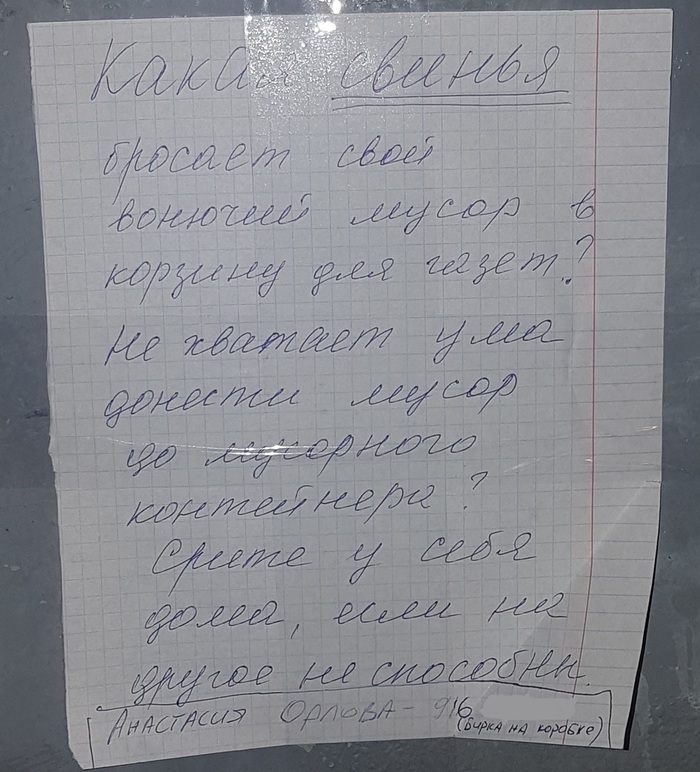 Какая свинья
бросает свой
вонючий мусор в
корзину для газет?
Не хватает ума
донести мусор
до мусорного
контейнера?
Срите у себя
дома, если на
другое не способны.
АНАСТАСИЯ ОРЛОВА - 916
(БИРКА НА КОРОБКЕ)